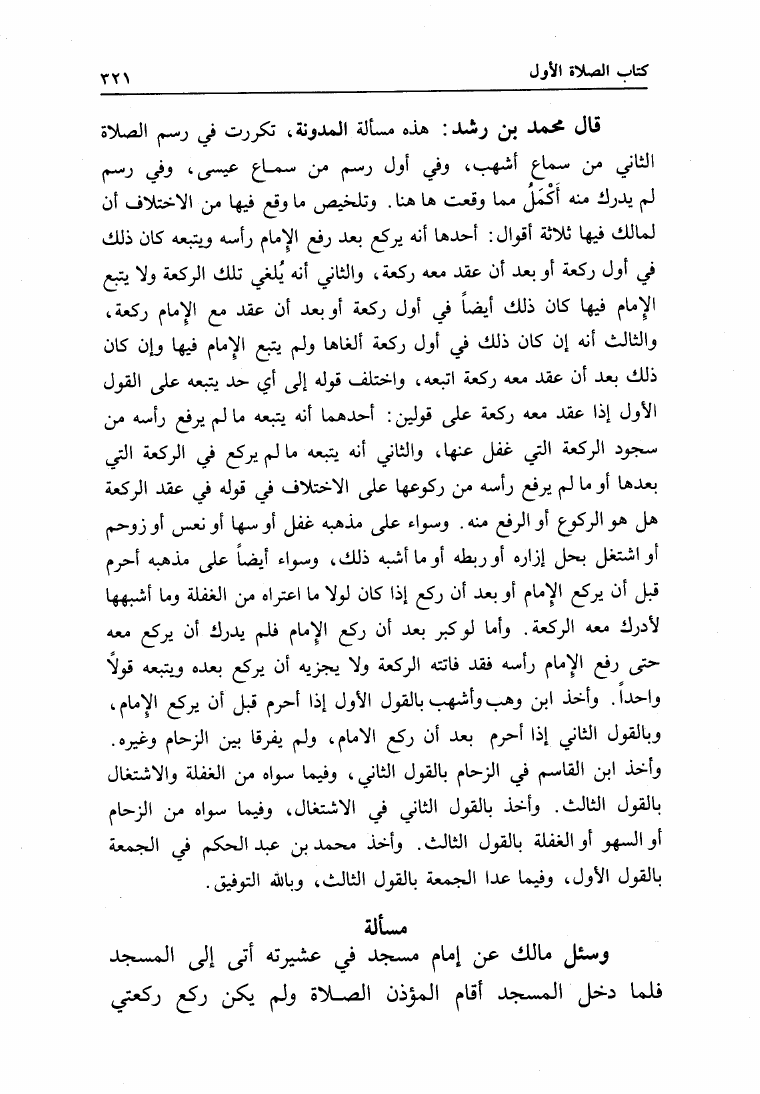 كتاب الصلاة الأول ٣٢١
قال محمد بن رشد: هذه مسألة المدونة، تكررت في رسم الصلاة
الثاني من سماع أشهب، وفي أول رسم من سماع عيسى، وفي رسم
لم يدرك منه أَكْمَلُ مما وقعت ها هنا. وتلخيص ما وقع فيها من الاختلاف أن
لمالك فيها ثلاثة أقوال: أحدها أنه يركع بعد رفع الإمام رأسه ويتبعه كان ذلك
في أول ركعة أو بعد أن عقد معه ركعة، والثاني أنه يُلغي تلك الركعة ولا يتبع
الإمام فيها كان ذلك أيضاً في أول ركعة أو بعد أن عقد مع الإمام ركعة،
والثالث أنه إن كان ذلك في أول ركعة ألغاها ولم يتبع الإمام فيها وإن كان
ذلك بعد أن عقد معه ركعة اتبعه، واختلف قوله إلى أي حد يتبعه على القول
الأول إذا عقد معه ركعة على قولين: أحدهما أنه يتبعه ما لم يرفع رأسه من
سجود الركعة التي غفل عنها، والثاني أنه يتبعه ما لم يركع في الركعة التي
بعدها أو ما لم يرفع رأسه من ركوعها على الاختلاف في قوله في عقد الركعة
هل هو الركوع أو الرفع منه. وسواء على مذهبه غفل أو سها أو نعس أو زوحم
أو اشتغل بحل إزاره أو ربطه أو ما أشبه ذلك، وسواء أيضاً على مذهبه أحرم
قبل أن يركع الإمام أو بعد أن ركع إذا كان لولا ما اعتراه من الغفلة وما أشبهها
لأدرك معه الركعة. وأما لو كبر بعد أن ركع الإمام فلم يدرك أن يركع معه
حتى رفع الإمام رأسه فقد فاتته الركعة ولا يجزيه أن يركع بعده ويتبعه قولاً
واحداً. وأخذ ابن وهب وأشهب بالقول الأول إذا أحرم قبل أن يركع الإمام،
وبالقول الثاني إذا أحرم بعد أن ركع الامام، ولم يفرقا بين الزحام وغيره.
وأخذ ابن القاسم في الزحام بالقول الثاني، وفيما سواه من الغفلة والاشتغال
بالقول الثالث. وأخذ بالقول الثاني في الاشتغال، وفيما سواه من الزحام
أو السهو أو الغفلة بالقول الثالث. وأخذ محمد بن عبد الحكم في الجمعة
بالقول الأول، وفيما عدا الجمعة بالقول الثالث، وبالله التوفيق.
مسألة
وسئل مالك عن إمام مسجد في عشيرته أتى إلى المسجد
فلما دخل المسجد أقام المؤذن الصلاة ولم يكن ركع ركعتي